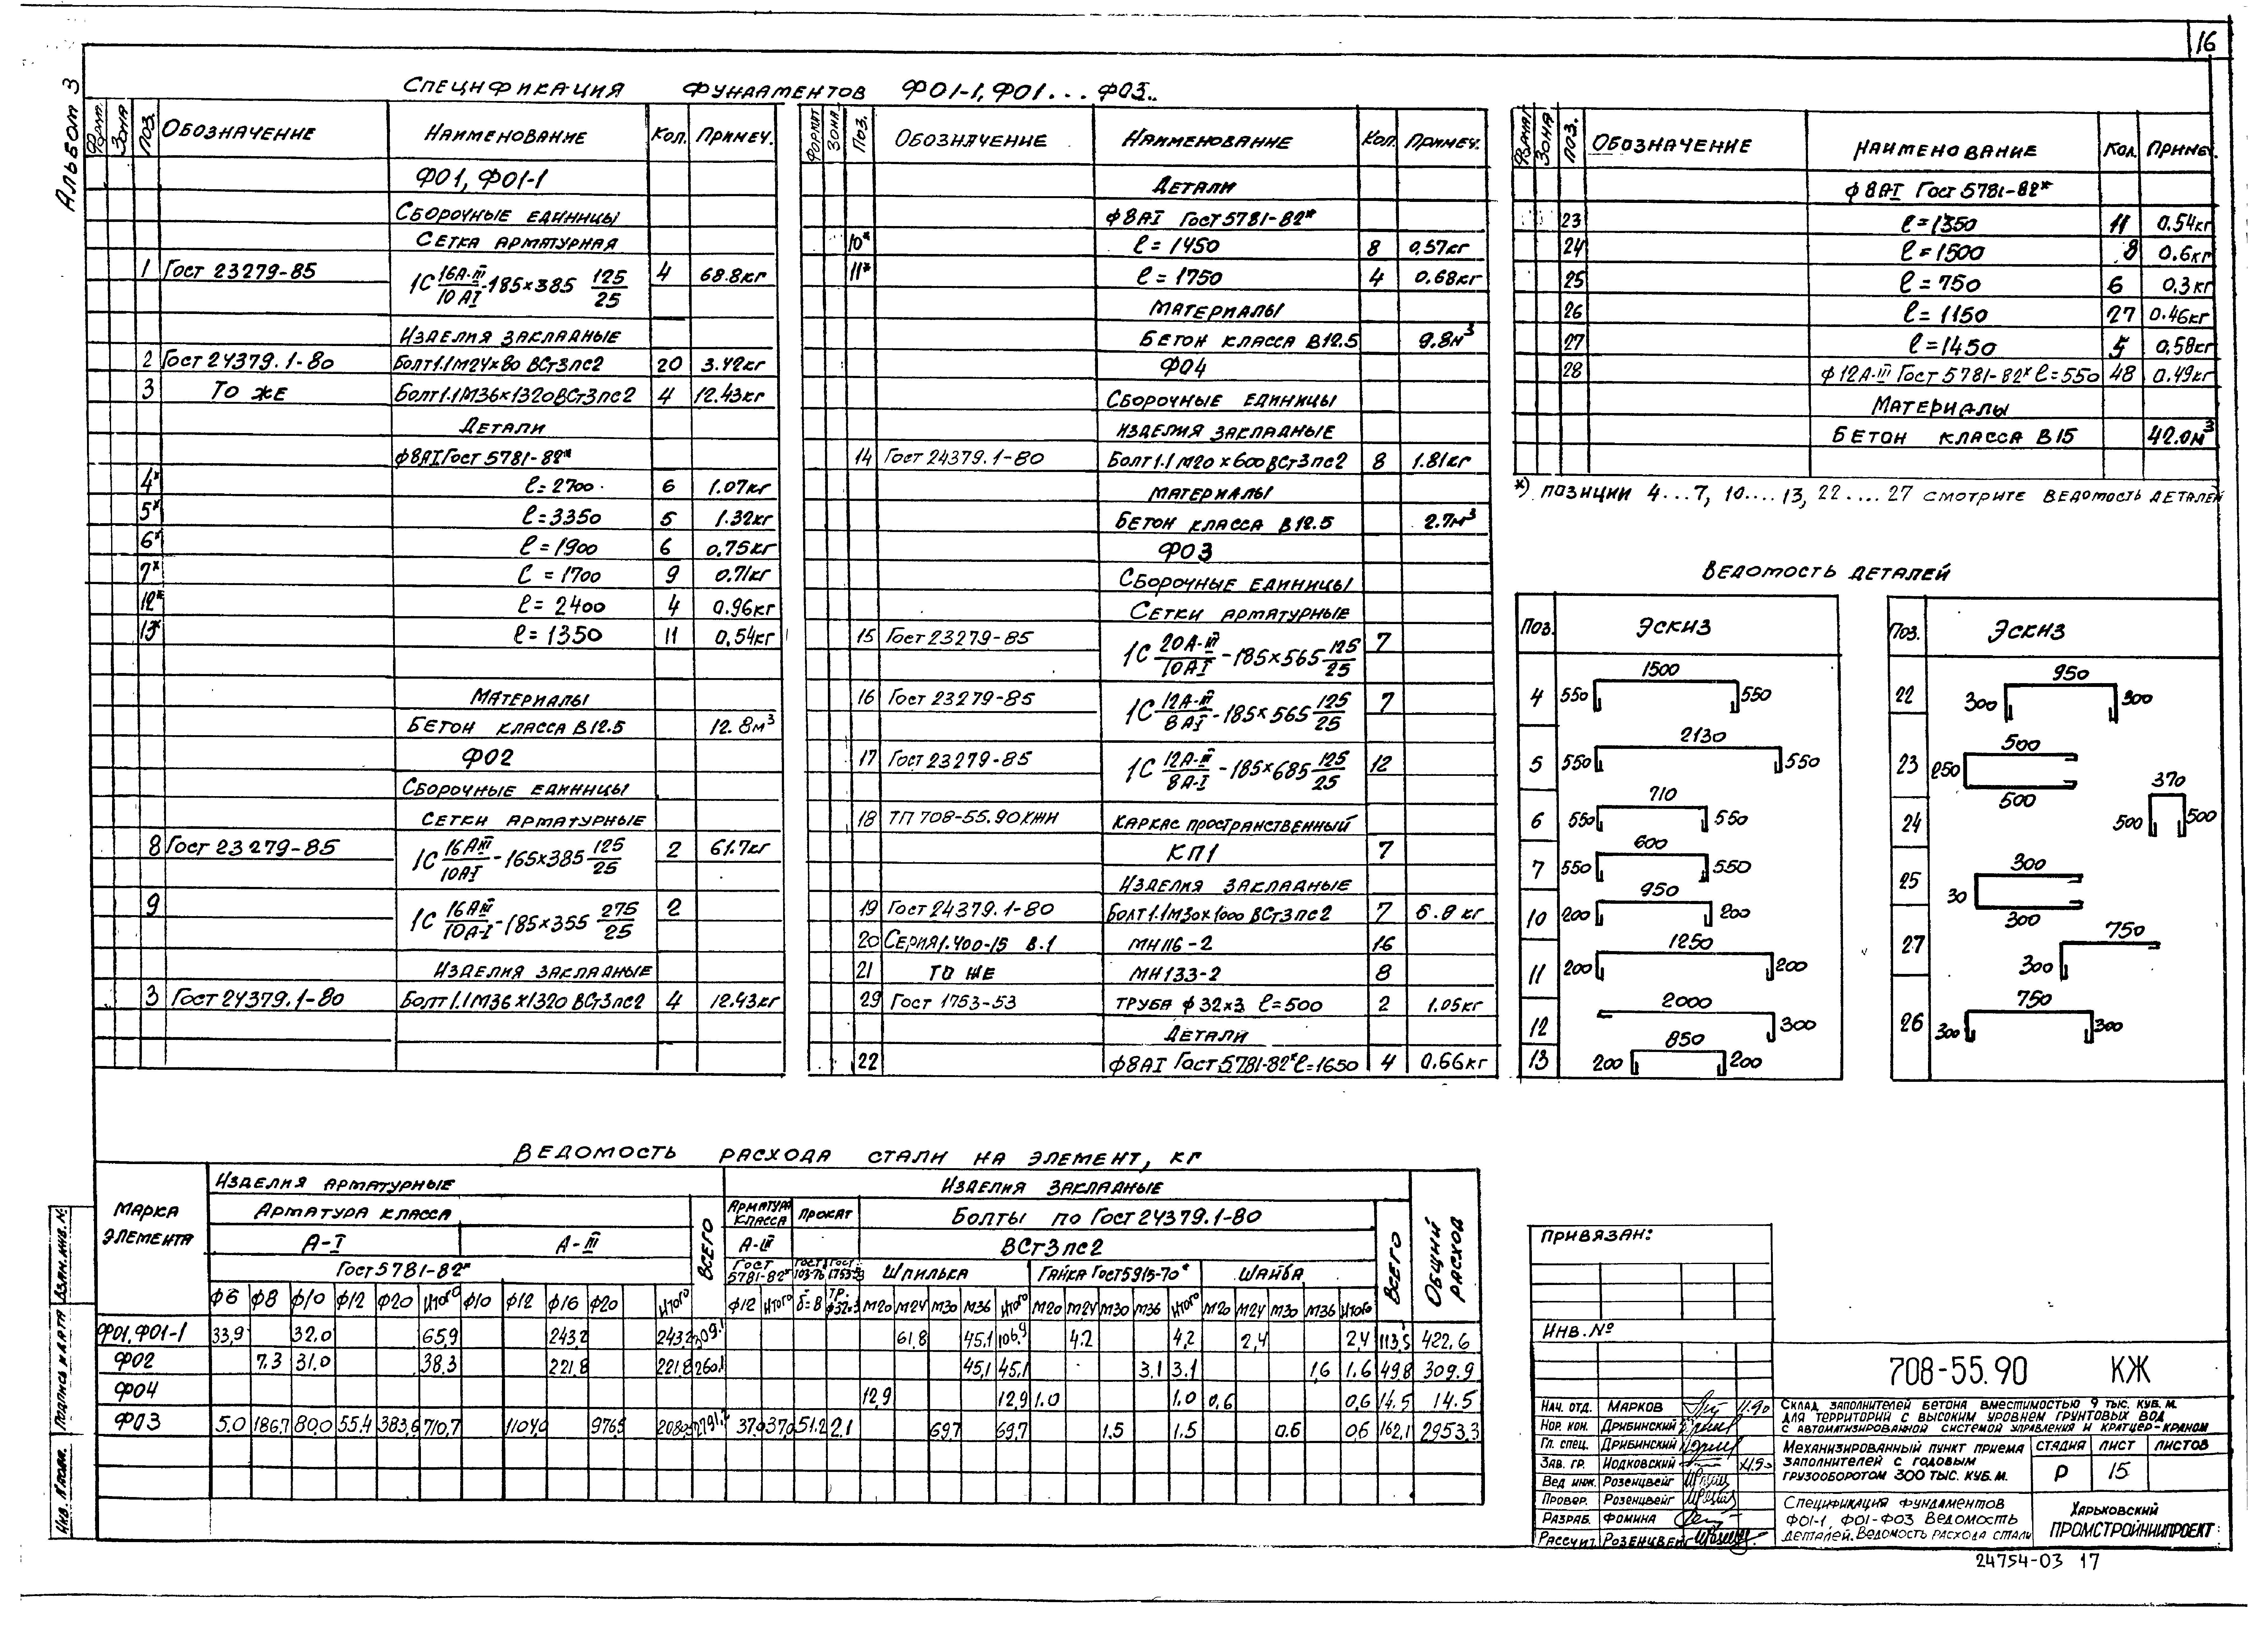 16
Альбом 3
Спецификация фундаментов Ф01-1, Ф01... Ф03..
Форм. Зона Поз. Обозначение Наименование Кол. Примеч.
Ф01, Ф01-1
Сборочные единицы
Сетка арматурная
1 Гост 23279-85 1С 16А-III/10АI -185×385 125/25 4 68.8кг
Изделия закладные
2 Гост 24379.1-80 Болт1.1М24×80 ВСт3пс2 20 3.42кг
3 То же Болт1.1М36×1320ВСт3пс2 4 12.43кг
Детали
ф8АI Гост 5781-82*
4* ℓ=2700 6 1.07кг
5* ℓ=3350 5 1.32кг
6* ℓ=1900 6 0.75кг
7* ℓ=1700 9 0.71кг
12* ℓ=2400 4 0.96кг
13* ℓ=1350 11 0,54кг
Материалы
Бетон класса В12.5 12.8м³
Ф02
Сборочные единицы
Сетки арматурные
8 Гост 23279-85 1С 16АIII/10АI -165×385 125/25 2 61.7кг
9 1С 16АIII/10А-I -185×355 275/25 2
Изделия закладные
3 Гост 24379.1-80 Болт1.1М36×1320 ВСт3пс2 4 12.43кг
Формат Зона Поз. Обозначение Наименование Кол. Примеч.
Детали
ф8АI Гост 5781-82*
10* ℓ=1450 8 0,57кг
11* ℓ=1750 4 0.68кг
Материалы
Бетон класса В12.5 9.8м³
Ф04
Сборочные единицы
Изделия закладные
14 Гост 24379.1-80 Болт1.1М20×600ВСт3пс2 8 1.81кг
Материалы
Бетон класса В12.5 2.7м³
Ф03
Сборочные единицы
Сетки арматурные
15 Гост 23279-85 1С 20А-III/10АI -185×565 125/25 7
16 Гост 23279-85 1С 12А-III/8АI -185×565 125/25 7
17 Гост 23279-85 1С 12А-III/8А-I -185×685 125/25 12
18 ТП 708-55.90КЖИ Каркас пространственный
КП1 7
Изделия закладные
19 Гост 24379.1-80 Болт1.1М30×1000 ВСт3пс2 7
20 Серия1.400-15 В.1 МН116-2 16
21 То же МН133-2 8
29 Гост 1753-53 Труба ф32×3 ℓ=500 2 1.05кг
Детали
22 ф8АI Гост 5781-82* ℓ=1650 4 0.66кг
Зона Поз. Обозначение Наименование Кол. Примеч.
ф8АI Гост 5781-82*
23 ℓ=1350 11 0.54кг
24 ℓ=1500 8 0.6кг
25 ℓ=750 6 0.3кг
26 ℓ=1150 27 0.46кг
27 ℓ=1450 5 0.58кг
28 ф12А-III Гост 5781-82* ℓ=550 48 0.49кг
Материалы
Бетон класса В15 42.0м³
*) позиции 4...7, 10....13, 22....27 смотрите ведомость деталей
Ведомость деталей
Поз. Эскиз
4 550 1500 550
5 550 2130 550
6 550 710 550
7 550 600 550
10 200 950 200
11 200 1250 200
12 2000 300
13 200 850 200
Поз. Эскиз
22 300 950 300
23 250 500 500
24 500 370 500
25 30 300 300
27 300 750
26 300 750 300
Ведомость расхода стали на элемент, кг
Марка элемента
Изделия арматурные Изделия закладные Общий расход
Арматура класса Всего Арматура класса Прокат Болты по Гост 24379.1-80 Всего
А-I А-III А-III ВСт3пс2
Гост 5781-82* Гост 5781-82* Гост 103-76 Гост 1753-53 Шпилька Гайка Гост5915-70* Шайба
ф6 ф8 ф10 ф12 ф20 Итого ф10 ф12 ф16 ф20 Итого ф12 Итого δ=8 Тр. ф32×3 М20 М24 М30 М36 Итого М20 М24 М30 М36 Итого М20 М24 М30 М36 Итого
Ф01,Ф01-1 33,9 32.0 65,9 243,2 243,2 309.1 61.8 45,1 106,9 4.2 4,2 2,4 2,4 113,5 422.6
Ф02 7.3 31.0 38.3 221.8 221.8 260.1 45,1 45,1 3.1 3.1 1,6 1.6 49.8 309.9
Ф04 12,9 12,9 1.0 1.0 0,6 0,6 14.5 14.5
Ф03 5.0 186,7 80,0 55.4 383,6 710,7 1104,0 976,5 2080,5 2791,2 37,0 37,0 51.2 2.1 69,7 69.7 1.5 1.5 0.6 0,6 162,1 2953.3
Взам. инв. №
Подпись и дата
Инв. № подл.
Привязан:
Инв. №
708-55.90 КЖ
Нач. отд. Марков 11.90
Нор. кон. Дрибинский
Гл. спец. Дрибинский
Зав. гр. Иодковский
Вед инж. Розенцвейг
Провер. Розенцвейг
Разраб. Фомина
Рассчит. Розенцвейг
Склад заполнителей бетона вместимостью 9 тыс. куб. м.
для территорий с высоким уровнем грунтовых вод
с автоматизированной системой управления и кратцер-краном
Механизированный пункт приема
заполнителей с годовым
грузооборотом 300 тыс. куб. м.
Стадия Лист Листов
Р 15
Спецификация фундаментов
Ф01-1, Ф01-Ф03 Ведомость
деталей. Ведомость расхода стали
Харьковский
ПРОМСТРОЙНИИПРОЕКТ
24754-03 17